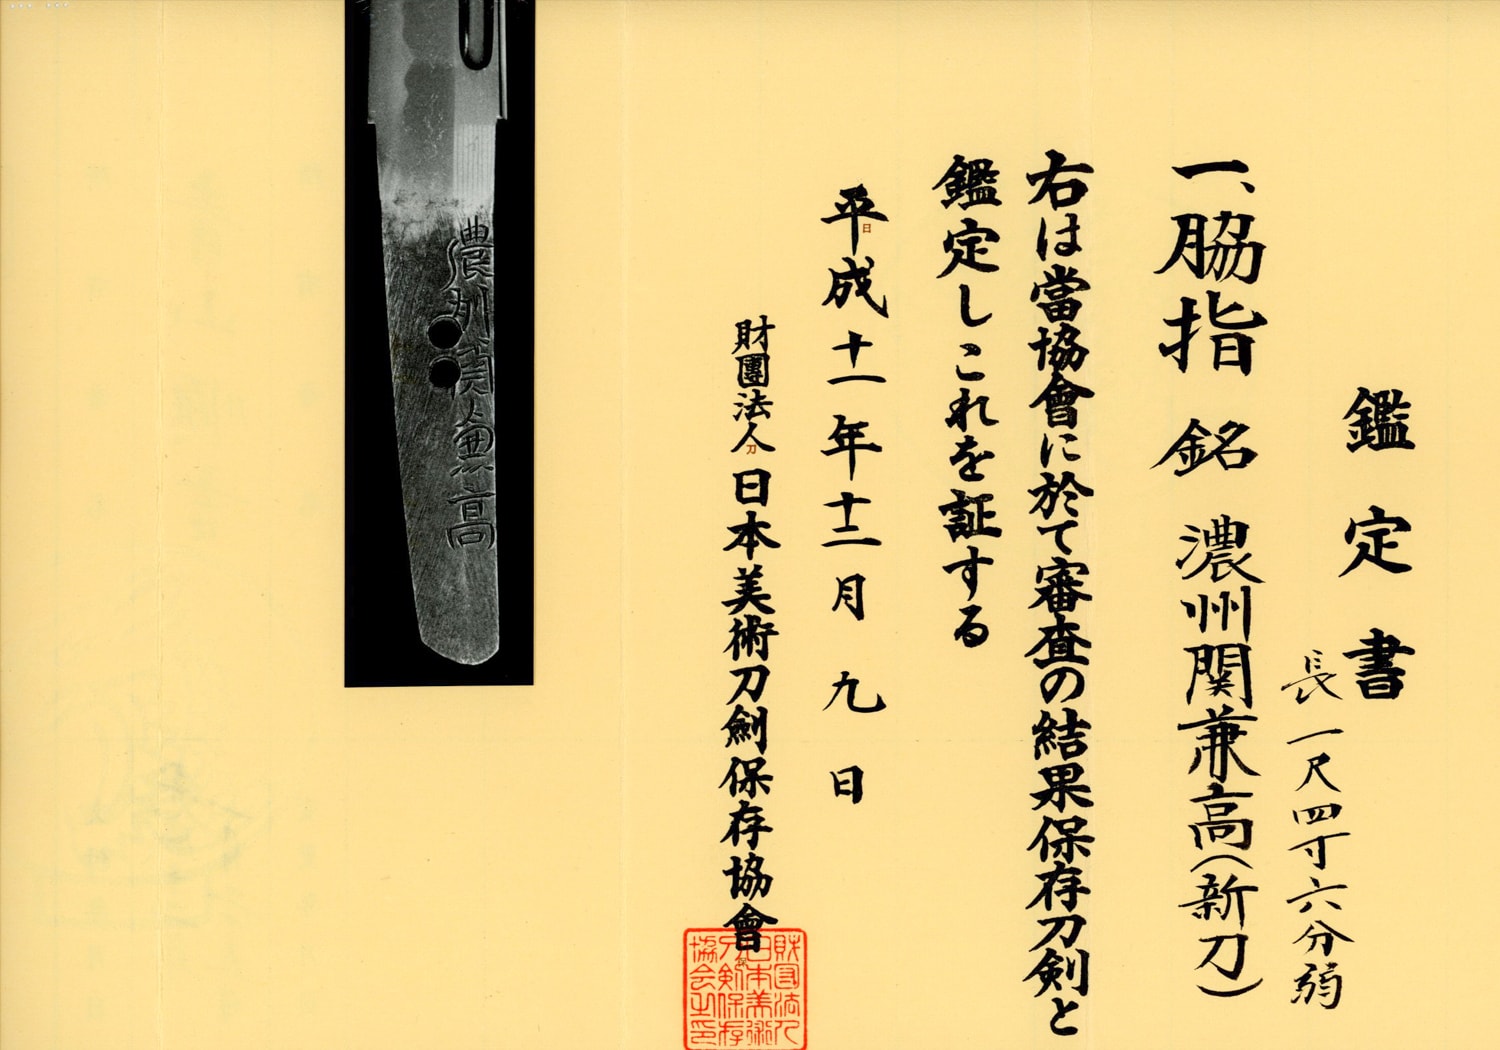 鑑定書
長一尺四寸六分弱
一、脇指 銘 濃州関兼高(新刀)
右は當協會に於て審査の結果保存刀剣と
鑑定しこれを証する
平成十一年十二月九日
財團法人日本美術刀劍保存協會
財団法人
日本美術
刀剣保存
協会之印
濃州関兼高